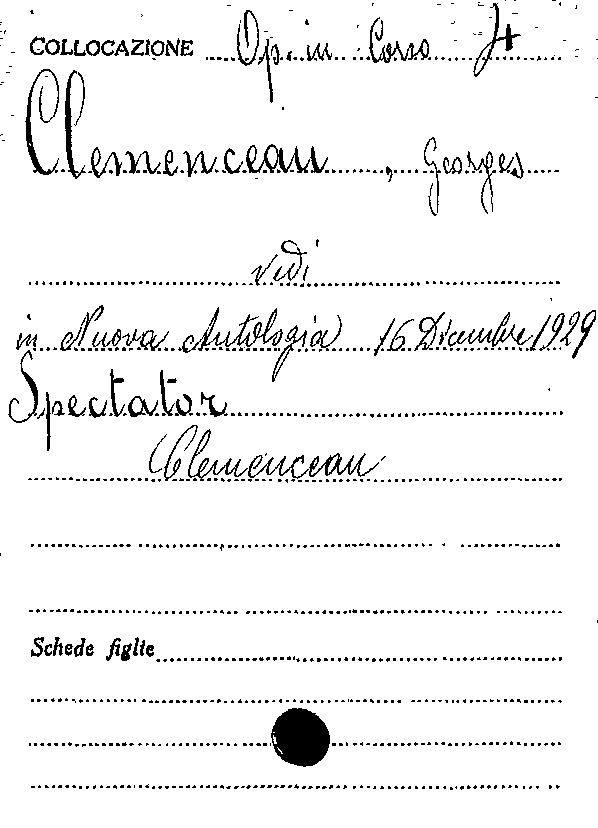 COLLOCAZIONE Op. in Corso 4
Clemenceau, Georges
vedi
in Nuova Antologia 16 Dicembre 1929
Spectator
Clemenceau
Schede figlie